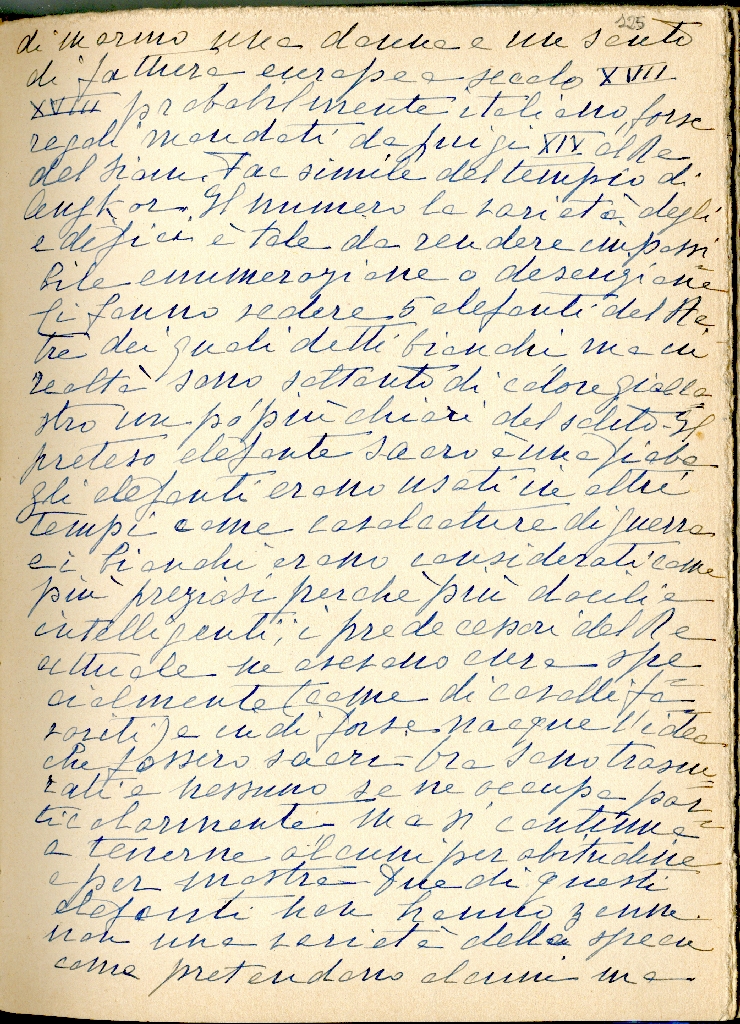 125
di marmo una donna e un santo
di fattura europea secolo XVII
XVIII probabilmente italiano, forse
regali mandati da Luigi XIV al Re
del Siam. Fac simile del tempio di
Angkor. Il numero la varietà degli
edifici è tale da rendere impossi=
bile enumerazione o descrizione
Ci fanno vedere 5 elefanti del Re,
tre dei quali detti bianchi ma in
realtà sono soltanto di colore gialla=
stro un po' più chiari del solito. Il
preteso elefante sacro è una fiaba
gli elefanti erano usati in altri
tempi come cavalcature di guerra
e i bianchi erano considerati come
più preziosi perchè più docili e
intelligenti; i predecessori del Re
attuale ne avevano cura spe=
cialmente (come di cavalli fa=
voriti) e indi forse nacque l'idea
che fossero sacri - Ora sono trascu=
rati e nessuno se ne occupa par=
ticolarmente ma si continua
a tenerne alcuni per abitudine
e per mostra. Due di questi
elefanti non hanno zanne.
non una varietà della specie
come pretendano alcuni ma